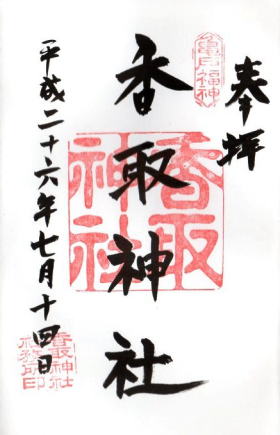 奉拝
亀戸福神
香取神社
香取神社
平成二十六年七月十四日
香取神社
社務所印